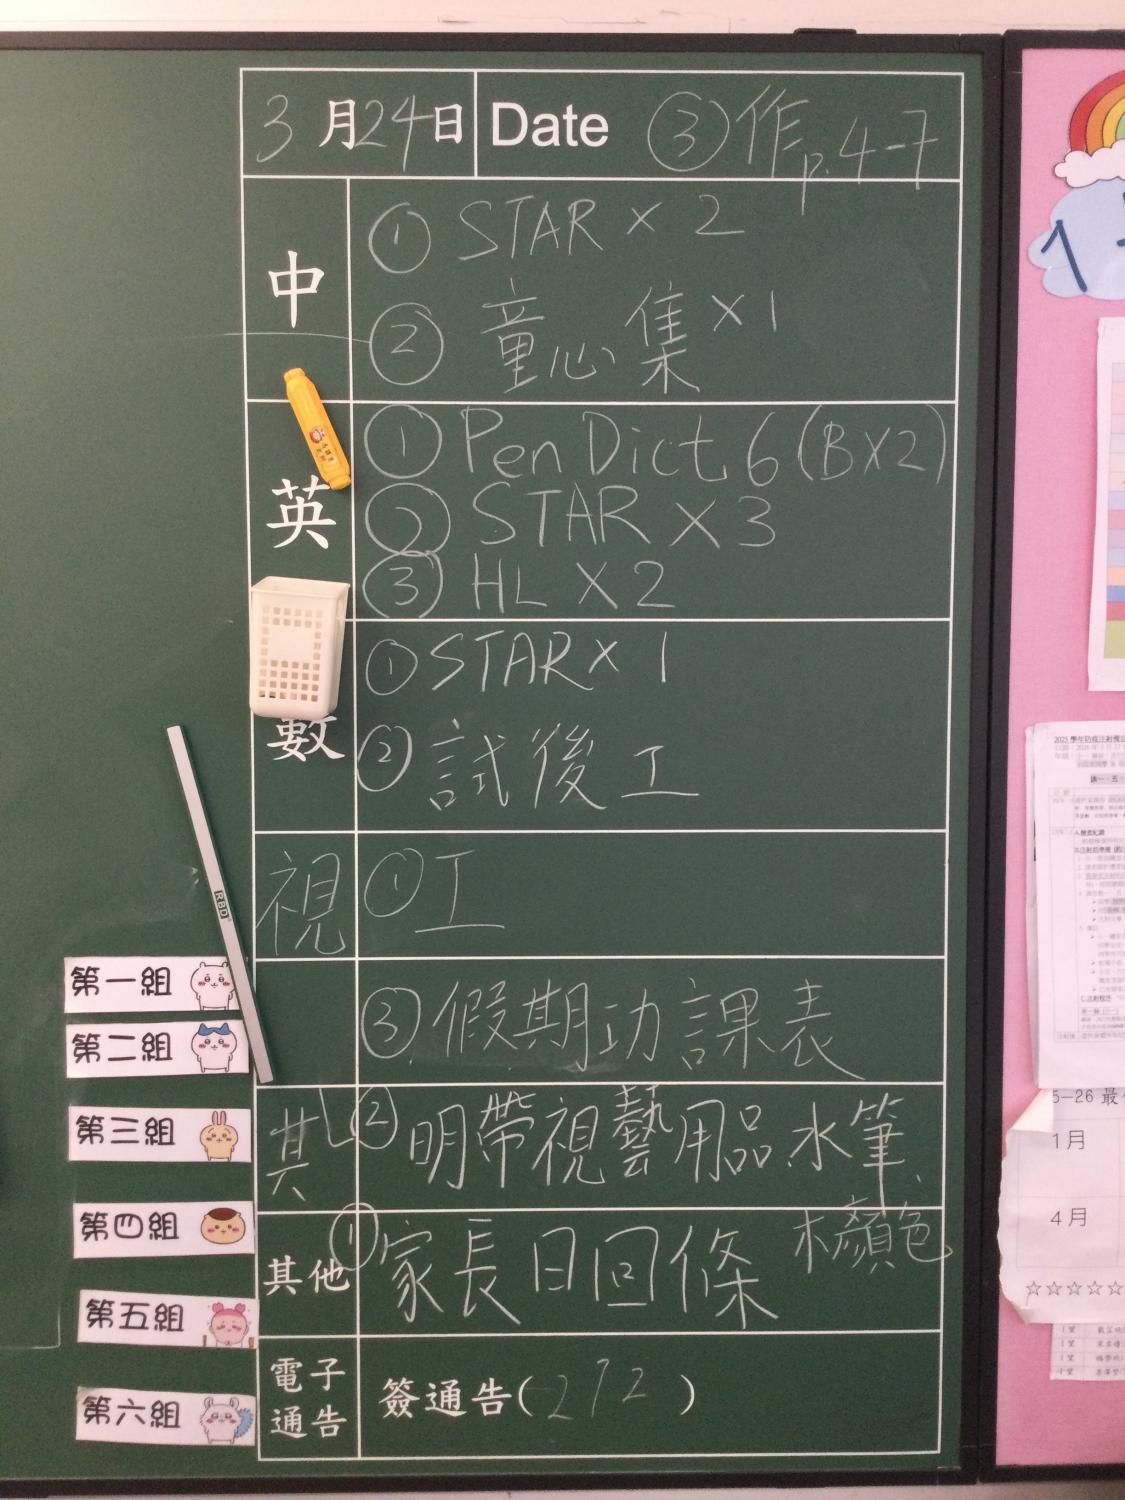 3月24日 Date ③作p.4-7
中
① STAR × 2
② 童心集×1
英
① Pen Dict 6 (B×2)
② STAR × 3
③ HL × 2
數
① STAR × 1
② 試後工
視 ① 工
③ 假期功課表
其 ② 明帶視藝用品水筆
木顏色
其他 ① 家長日回條
電子通告 簽通告(272)
RBD
第一組
第二組
第三組
第四組
第五組
第六組
5-26 最
1月
4月
☆☆☆☆☆